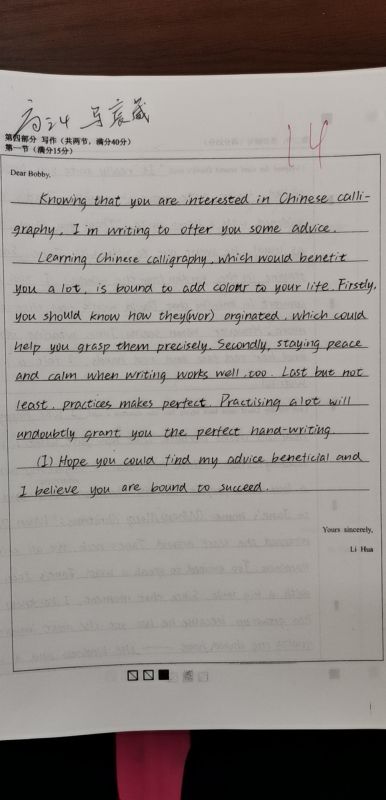 高24 马
14
第四部分 写作（共两节，满分40分）
第一节（满分15分）
Dear Bobby,
Knowing that you are interested in Chinese calli-
graphy, I'm writing to offer you some advice.
Learning Chinese calligraphy, which would benefit
you a lot, is bound to add colour to your life. Firstly,
you should know how they(wor) orginated, which could
help you grasp them precisely. Secondly, staying peace
and calm when writing works well, too. Last but not
least, practices makes perfect. Practising alot will
undoubtly grant you the perfect hand-writing
(I) Hope you could find my advice beneficial and
I believe you are bound to succeed.
Yours sincerely,
Li Hua